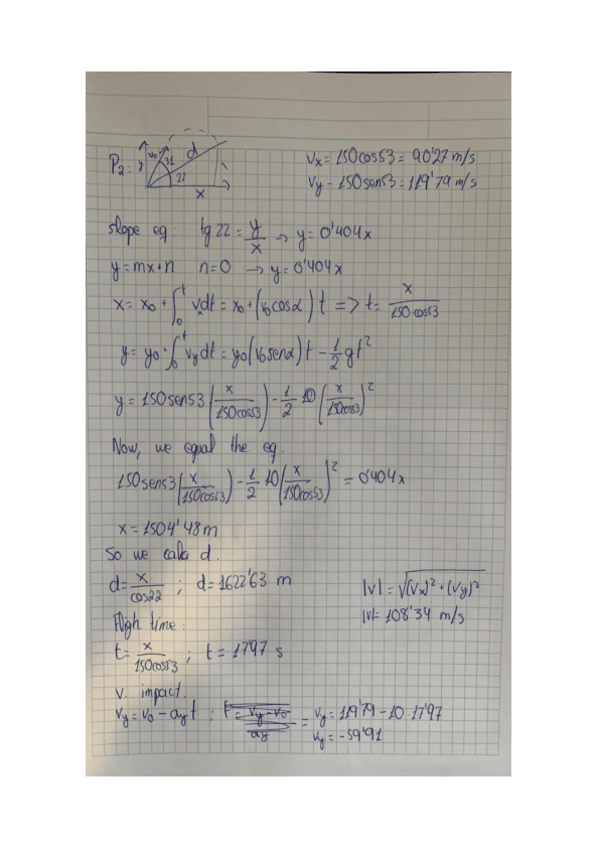 P2: y v0 31 d 22 x
Vx = 150cos53 = 90'27 m/s
Vy - 150sen53 = 119'79 m/s
slope eq: tg 22 = y/x → y = 0'404x
y = mx + n n = 0 → y = 0'404x
x = x0 + ∫0^t Vx dt = x0 + (v0 cosα) t => t = x/150cos53
y = y0 · ∫0^t Vy dt = y0 (v0 senα) t - 1/2 gt²
y = 150sen53 (x/150cos53) - 1/2 10 · (x/150cos53)²
Now, we equal the eq.
150sen53 (x/150cos53) - 1/2 10 (x/150cos53)² = 0'404x
x = 1504'48m
So we calc d.
d = x/cos22 ; d = 1622'63 m
|v| = √(Vx)² + (Vy)²
|v| = 108'34 m/s
Fligh time:
t = x/150cos53 ; t = 17'97 s
v. impact.
Vy = v0 - ay t ; t = Vy - v0/ay = Vy = 119'79 - 10 · 17'97
Vy = -59'91